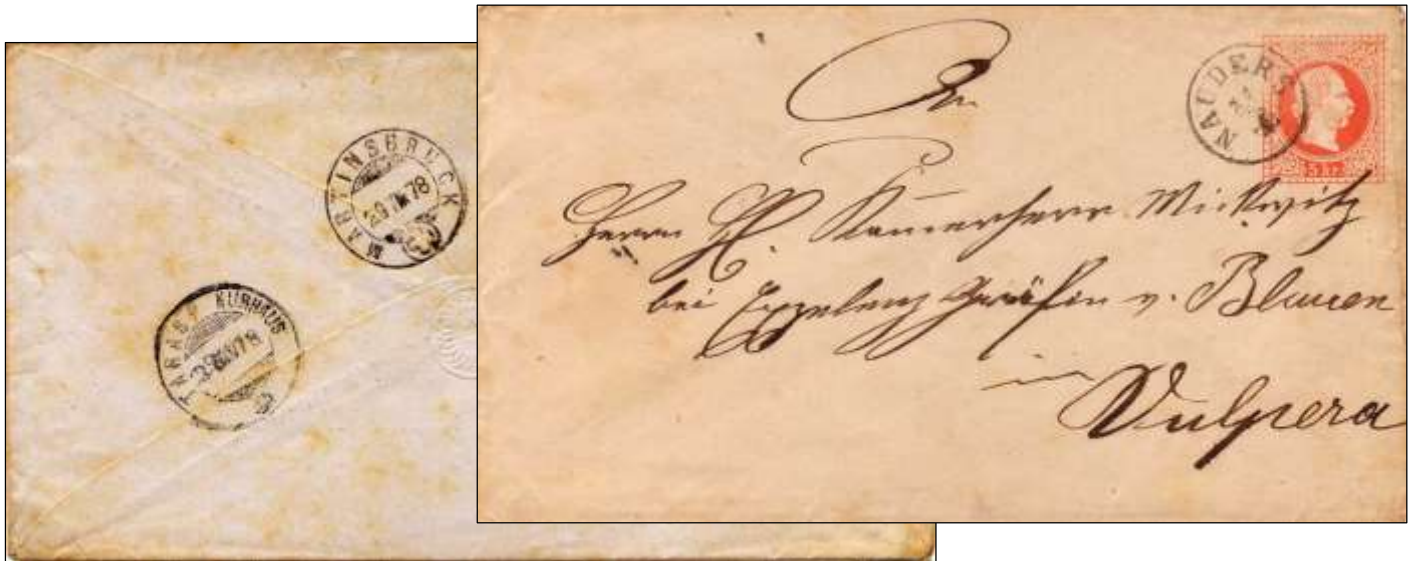 MARTINSBRUCK
78
TARASP KURHAUS
78
NAUDERS
5 KR.
An
Herrn H. Kamerherr Mickwitz
bei Exzelenz Gräfin v. Blumen
in
Vulpera